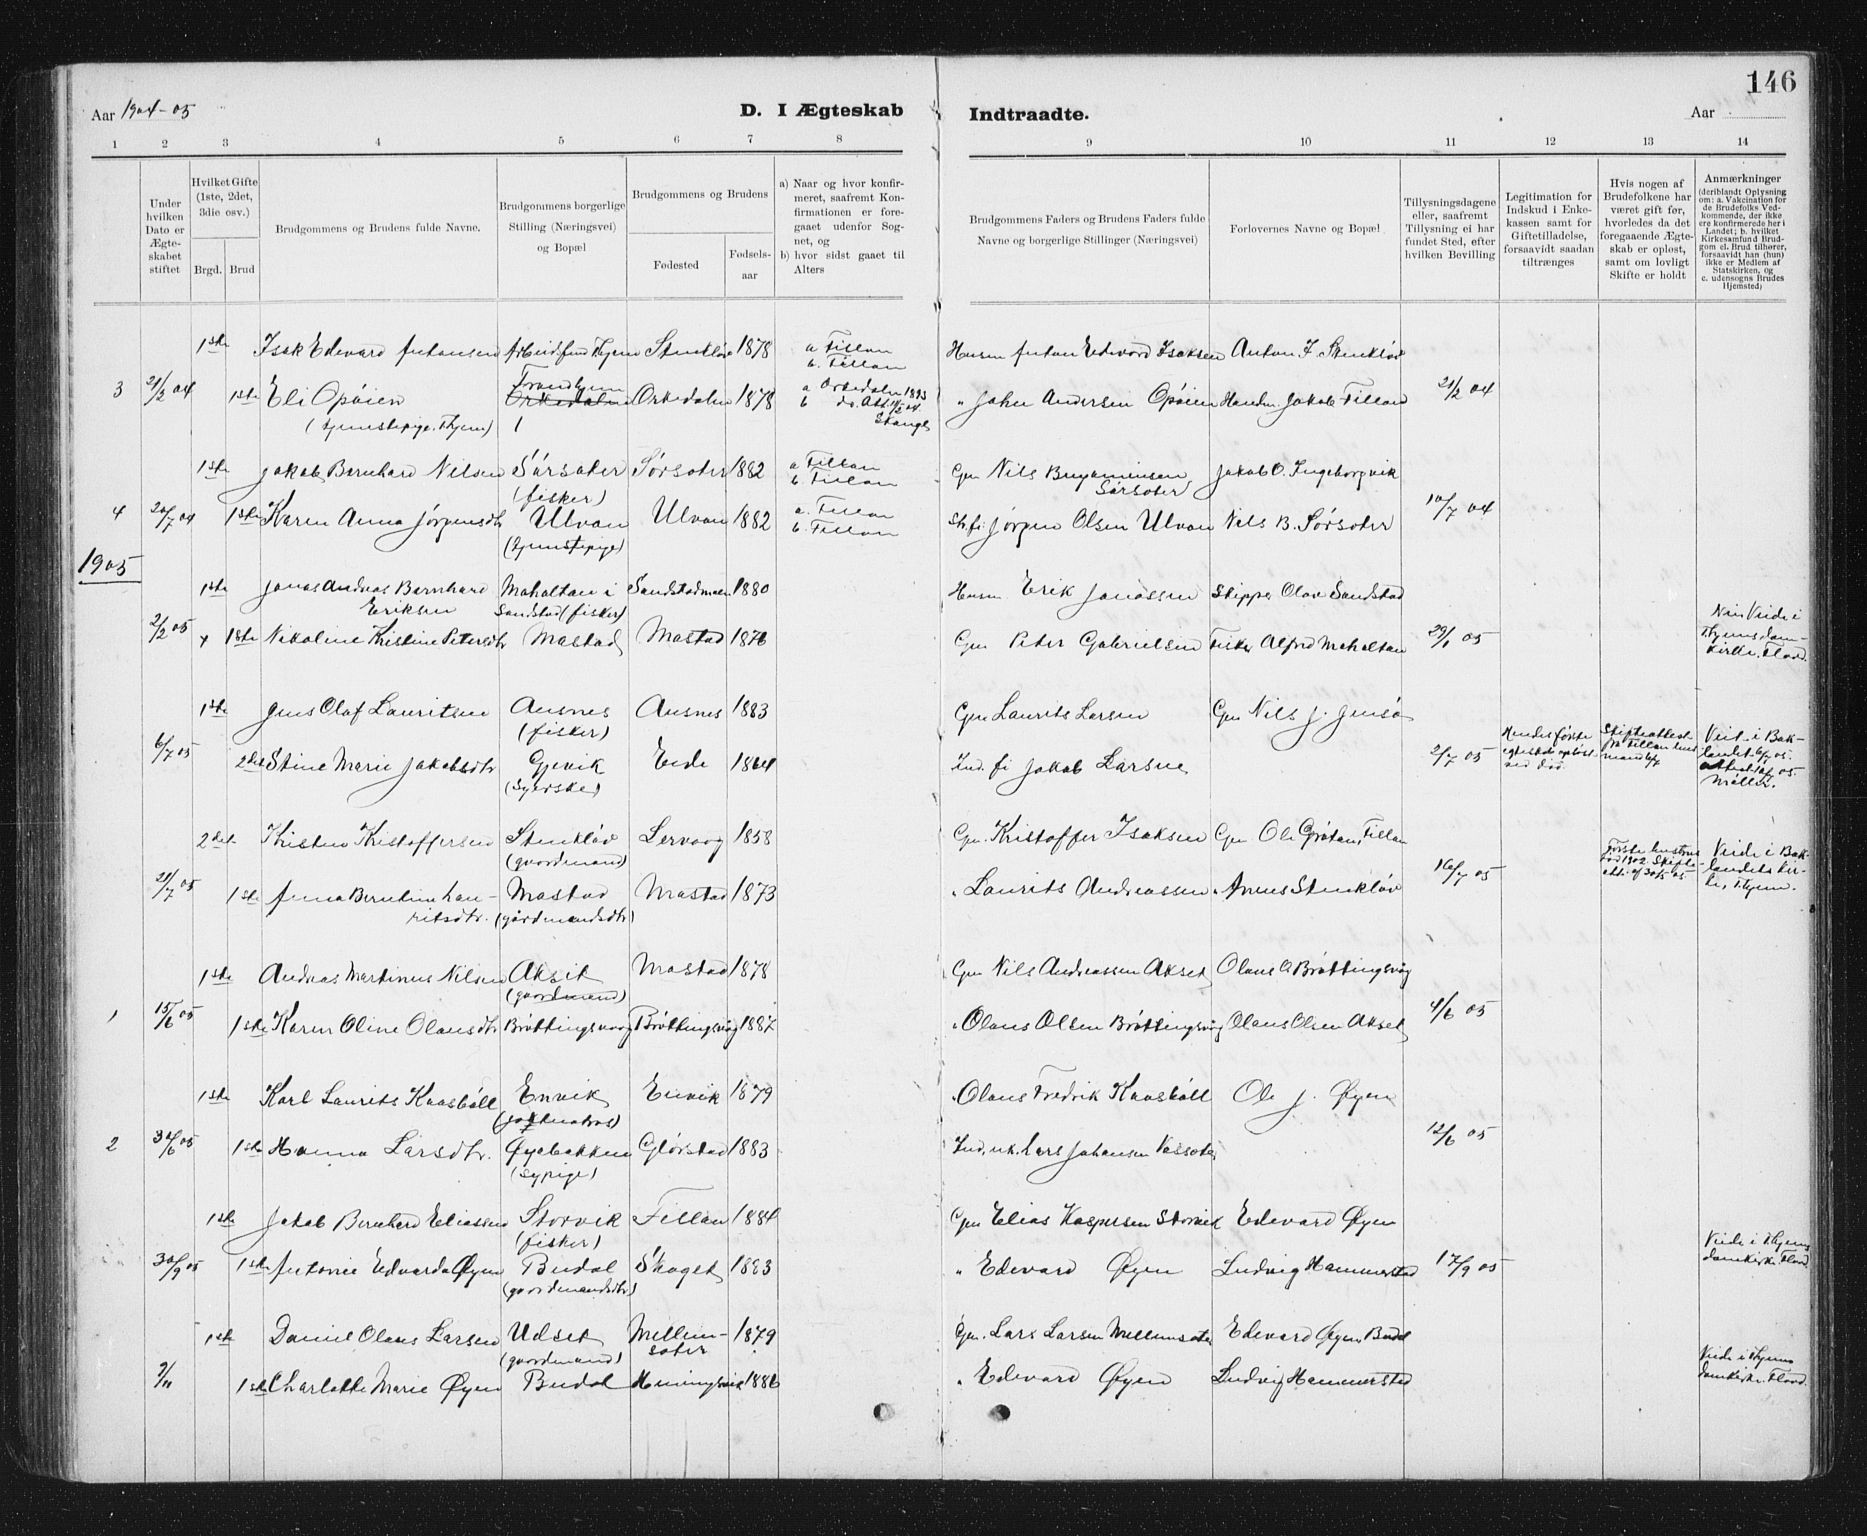 146
Aar 1904-05
D. I Ægteskab Indtraadte.
Aar
1 2 3 4 5 6 7 8 9 10 11 12 13 14
Under hvilken Dato er Ægteskabet stiftet
Hvilket Gifte (1ste, 2det, 3die osv.)
Brgd. Brud
Brudgommens og Brudens fulde Navne.
Brudgommens borgerlige Stilling (Næringsvei) og Bopæl
Brudgommens og Brudens
Fødested
Fødsels-aar
a) Naar og hvor konfir-
meret, saafremt Kon-
firmationen er fore-
gaaet udenfor Sog-
net, og
b) hvor sidst gaaet til
Alters
Brudgommens Faders og Brudens Faders fulde
Navne og borgerlige Stillinger (Næringsvei)
Forlovernes Navne og Bopæl
Tillysningsdagene
eller, saafremt
Tillysning ei har
fundet Sted, efter
hvilken Bevilling
Legitimation for
Indskud i Enke-
kassen samt for
Giftetilladelse,
forsaavidt saadan
tiltrænges
Hvis nogen af
Brudefolkene har
været gift før,
hvorledes da det
foregaaende Ægte-
skab er opløst,
samt om lovligt
Skifte er holdt
Anmærkninger
(deriblandt Oplysning
om: a. Vakcination for
de Brudefolks Ved-
kommende, der ikke
ere konfirmerede her i
Landet; b. hvilket
Kirkesamfund Brud-
gom el. Brud tilhører,
forsaavidt han (hun)
ikke er Medlem af
Statskirken, og
c. udensogns Brudes
Hjemsted)
1ste Isak Edevard Antonsen Stenkløv 1878 a Fillan b. Fillan Husm Anton Edevard Isaksen Anton J. Stenkløv
3 21/2 04 1ste Eli Opøien Trondhjem Orkedalen Orkedalen 1878 a Orkedalen 1893 " John Andersen Opøien Jakob Fillan 21/2 04
(tjenstepige. Thjem)
1ste Jakob Bernhard Nilsen Sørsæter Sørsæter 1882 a Fillan b. Fillan Gm Nils Benjaminsen Sørsæter Jakob O. Ingeborgvik
(fisker)
4 20/7 04 1ste Karen Anna Jørgensdtr Ulvan Ulvan 1882 a. Fillan b. Fillan Jørgen Olsen Ulvan Nils B. Sørsæter 10/7 04
(tjenstepige)
1905
1ste Jonas Andreas Bernhard Eriksen Mahaltan i Sandstad (fisker) Sandstadmoen 1880 Husm Erik Jonassen Skipper Olav Sandstad
2/2 05 1ste Nikoline Kristine Petersdtr Mastad Mastad 1876 Gm Peter Gabrielsen Fisker Alfred Mahaltan 29/1 05 Viede i Thjems Dom-kirke. Flood.
1ste Jens Olaf Lauritsen Ansnes Ansnes 1883 Gm Laurits Larsen Gm Nils J. Jensø
(fisker)
6/7 05 2det Stine Marie Jakobsdtr Gjevik Eide 1864 Ind. fi Jakob Larsen 2/7 05 Hendes første egteskab opløst ved død. Skifteattest fra Fillan
(Syerske) Viet i Bak-landet 6/7 05. Møller.
2det Kristen Kristoffersen Stenkløv Servaag 1858 Gm. Kristoffer Isaksen Gm Ole Grøtan, Fillan
(gaardmand)
21/7 05 1ste Anna Berntine Lau-ritsdtr. Mastad Mastad 1873 " Laurits Andreassen " Arnus Stenkløv 16/7 05 Første hustru død 1902. Skifte-att. af 30/5 05 Viede i Bak-landets kir-ke, Thjem.
(gårdmandsdtr)
1ste Andreas Martinus Nilsen Akset Mastad 1878 Gm Nils Andreassen Akset Olaus O Brøttingsvåg
(gaardmand)
1 15/6 05 1ste Karen Oline Olausdtr Brøttingsvaag Brøttingsvåg 1887 " Olaus Olsen Brøttingsvåg Olaus Olsen Akset 4/6 05
1ste Karl Laurits Kaasbøll Envik Envik 1879 " Olaus Fredrik Kaasbøll Ole J. Øyen
2 30/6 05 1ste Hanna Larsdtr. Øyabakken Glørstad 1883 Lars Johansen Vassæter 12/6 05
(sypige)
1ste Jakob Bernhard Eliassen Storvik Fillan 1884 Gm Elias Kaspersen Storvik Edevard Øyen
(fisker)
30/9 05 1ste Antonie Edvarda Øyen Budal Skaget 1883 " Edevard Øyen Ludvig Hammerstad 17/9 05 Viede i Thjems domkirke. Flood
(gaardmandsdtr)
1ste Daniel Olaus Larsen Udset Mellem-sæter 1879 Gm. Lars Larsen Mellemsæter Edevard Øyen, Budal
(gaardmand)
7/11 1ste Charlotte Marie Øyen Budal Heningsvik 1886 " Edevard Øyen Ludvig Hammerstad Viede i Thjems domkirke. Flood.